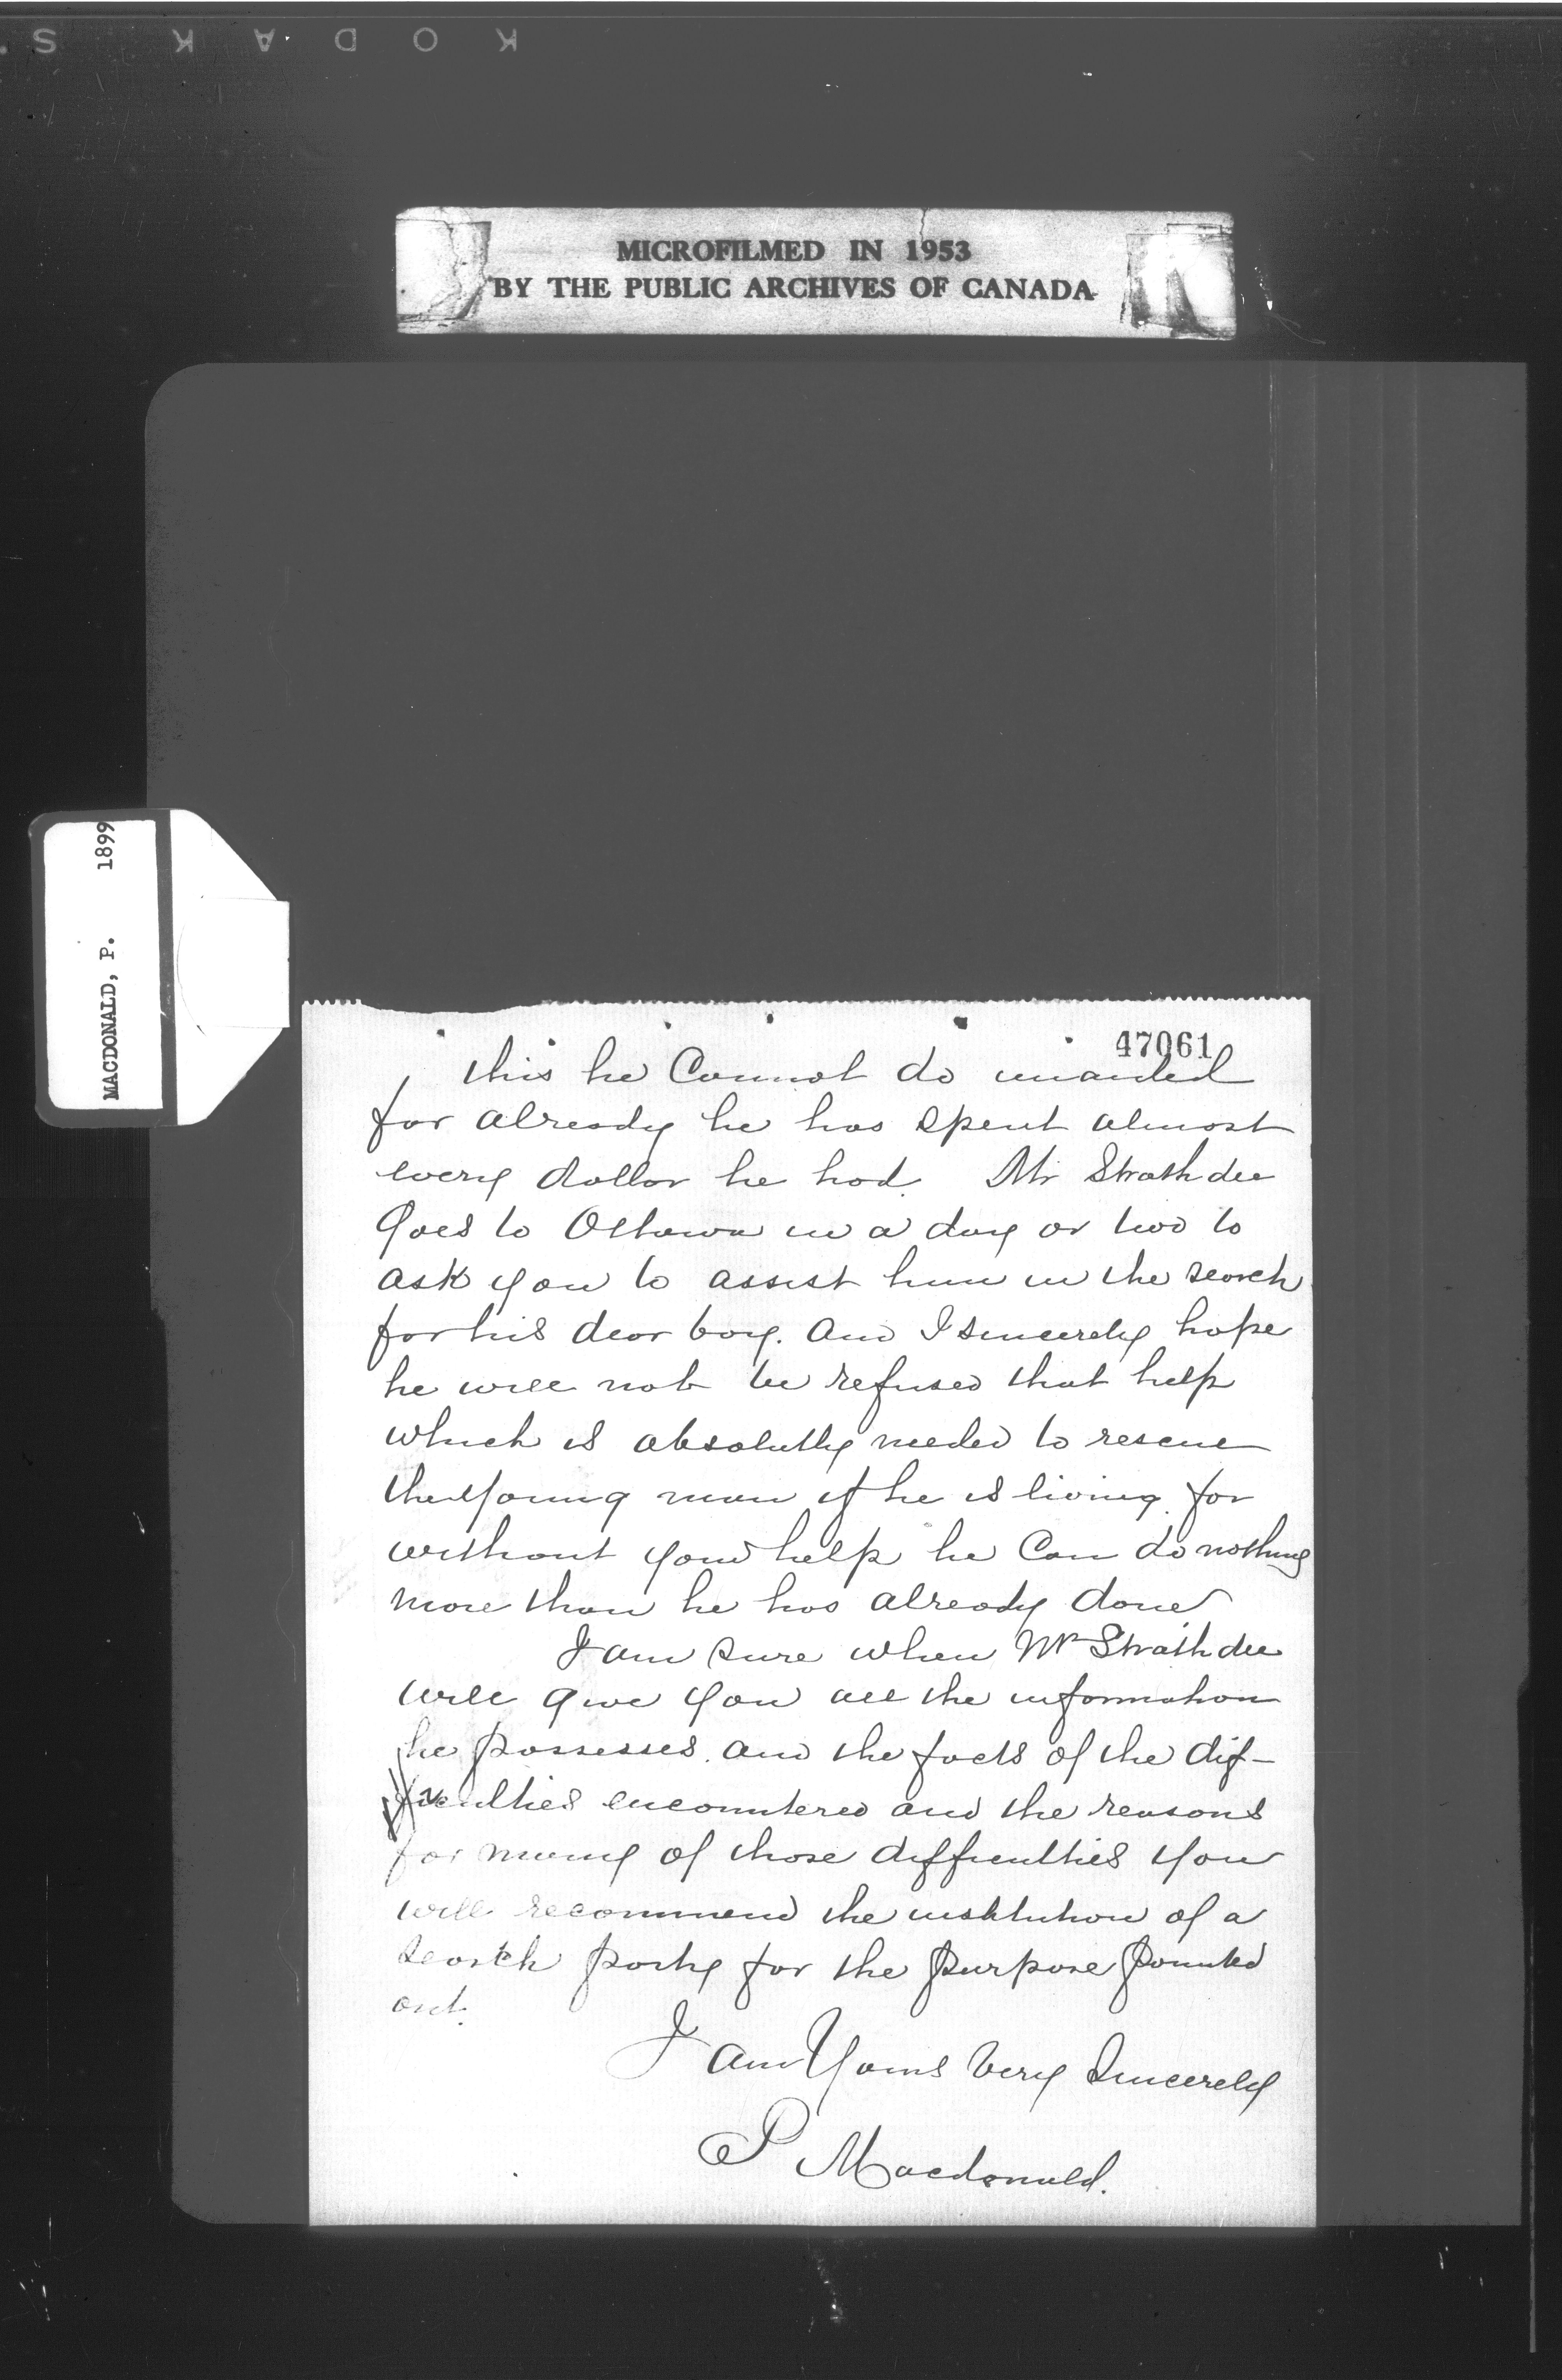 KODAK S.
MICROFILMED IN 1953
BY THE PUBLIC ARCHIVES OF CANADA
MACDONALD, P. 1899
47061
this he Cannot do unaided
for already he has spent almost
every dollar he had. Mr Strathdee
Goes to Ottawa in a day or two to
ask you to assist him in the search
for his dear boy. And I sincerely hope
he will not be refused that help
which is absolutely needed to rescue
the young man if he is living. for
without your help he Can do nothing
more than he has already done
I am sure when Mr Strathdee
will give you all the information
he possesses. and the facts of the dif-
ficulties encountered and the reasons
for many of those difficulties you
will recommend the institution of a
search party for the purpose pointed
out.
I am Yours Very Sincerely
P Macdonald.